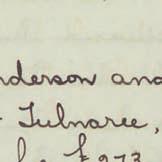 nderson and
Tulnaree,
£273